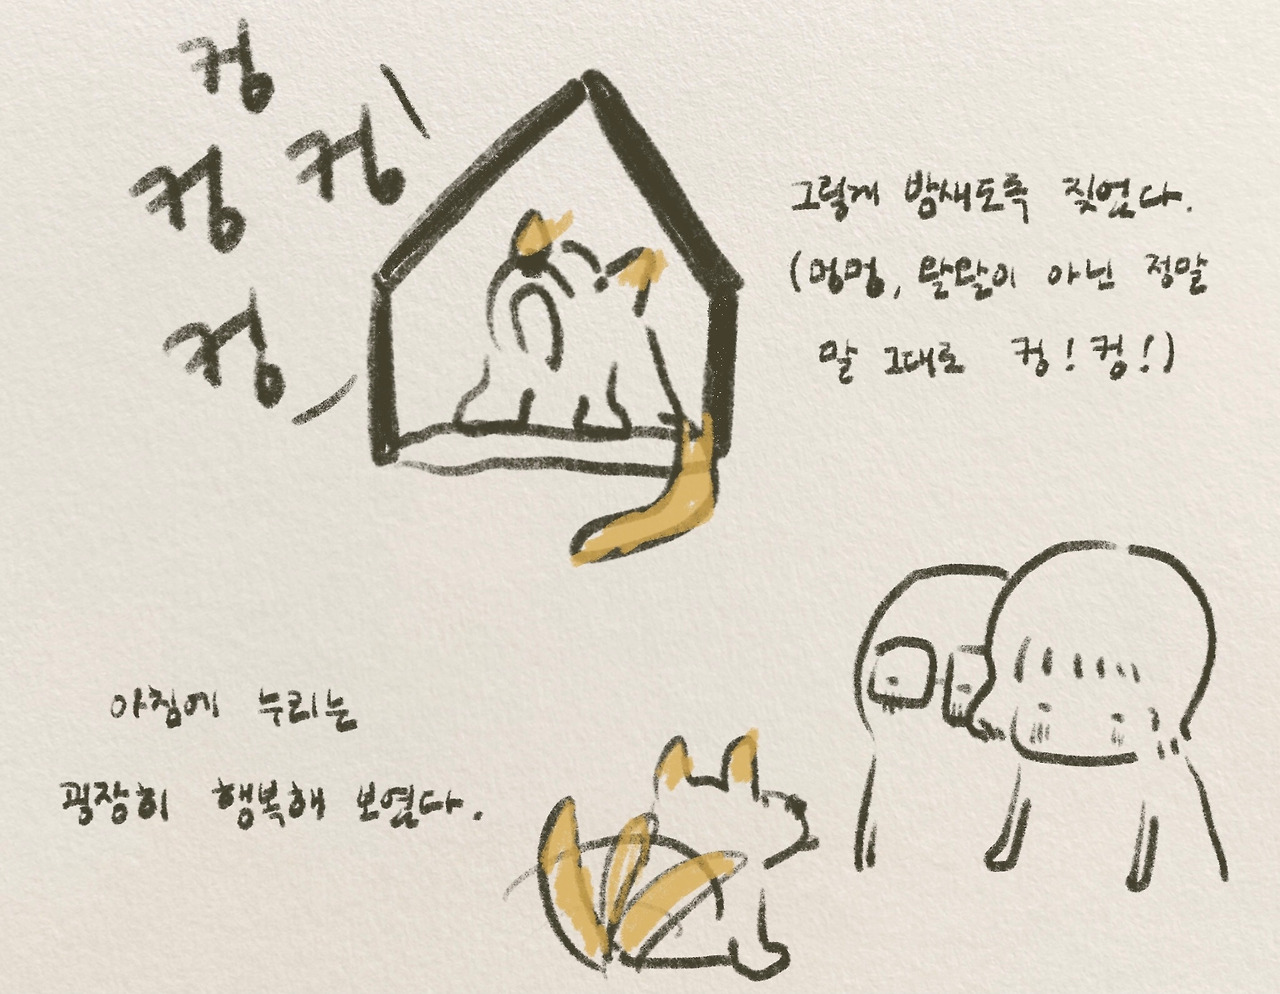 컹
컹
컹
컹
그렇게 밤새도록 짖었다.
(멍멍, 왈왈이 아닌 정말
말 그대로 컹! 컹!)
아침에 누리는
굉장히 행복해 보였다.